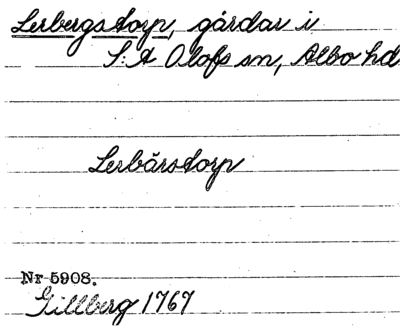 Lerbergstorp, gårdar i
S:t Olofs sn, Albo hd
Lerbärstorp
Nr 5908.
Gillberg 1767